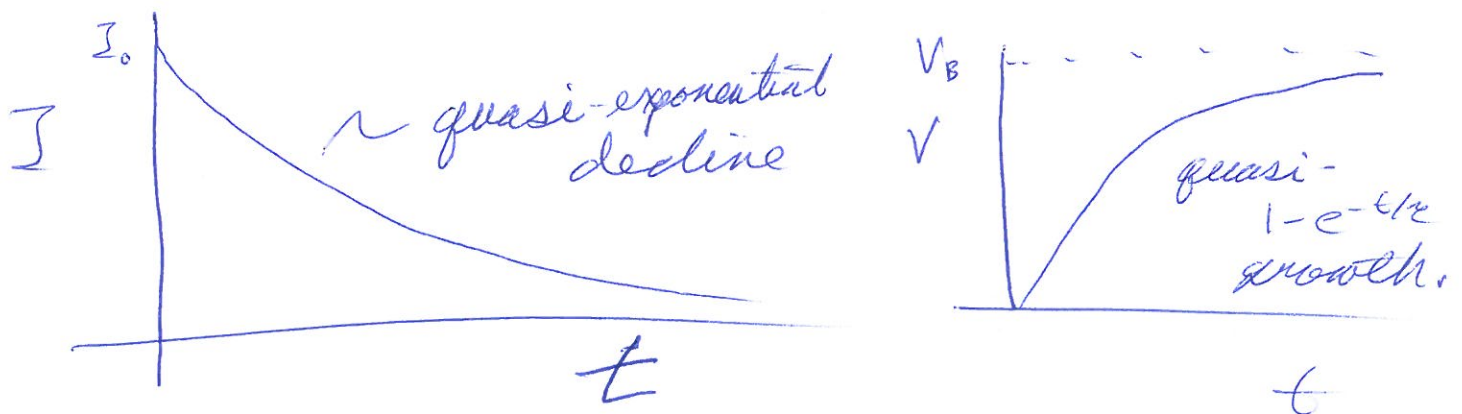 I₀
I
~ quasi-exponential
decline
t
V_B
V
quasi-
1-e^{-t/τ}
growth.
t